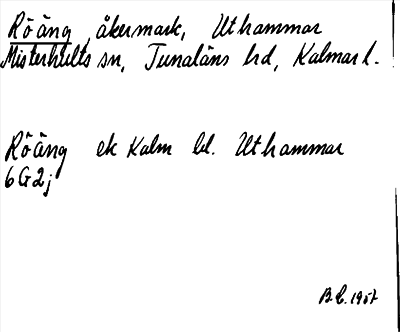 Röäng, åkermark, Uthammar
Misterhults sn, Tunaläns hd, Kalmar l.
Röäng ek Kalm bl. Uthammar
6G2j
B.C. 1957